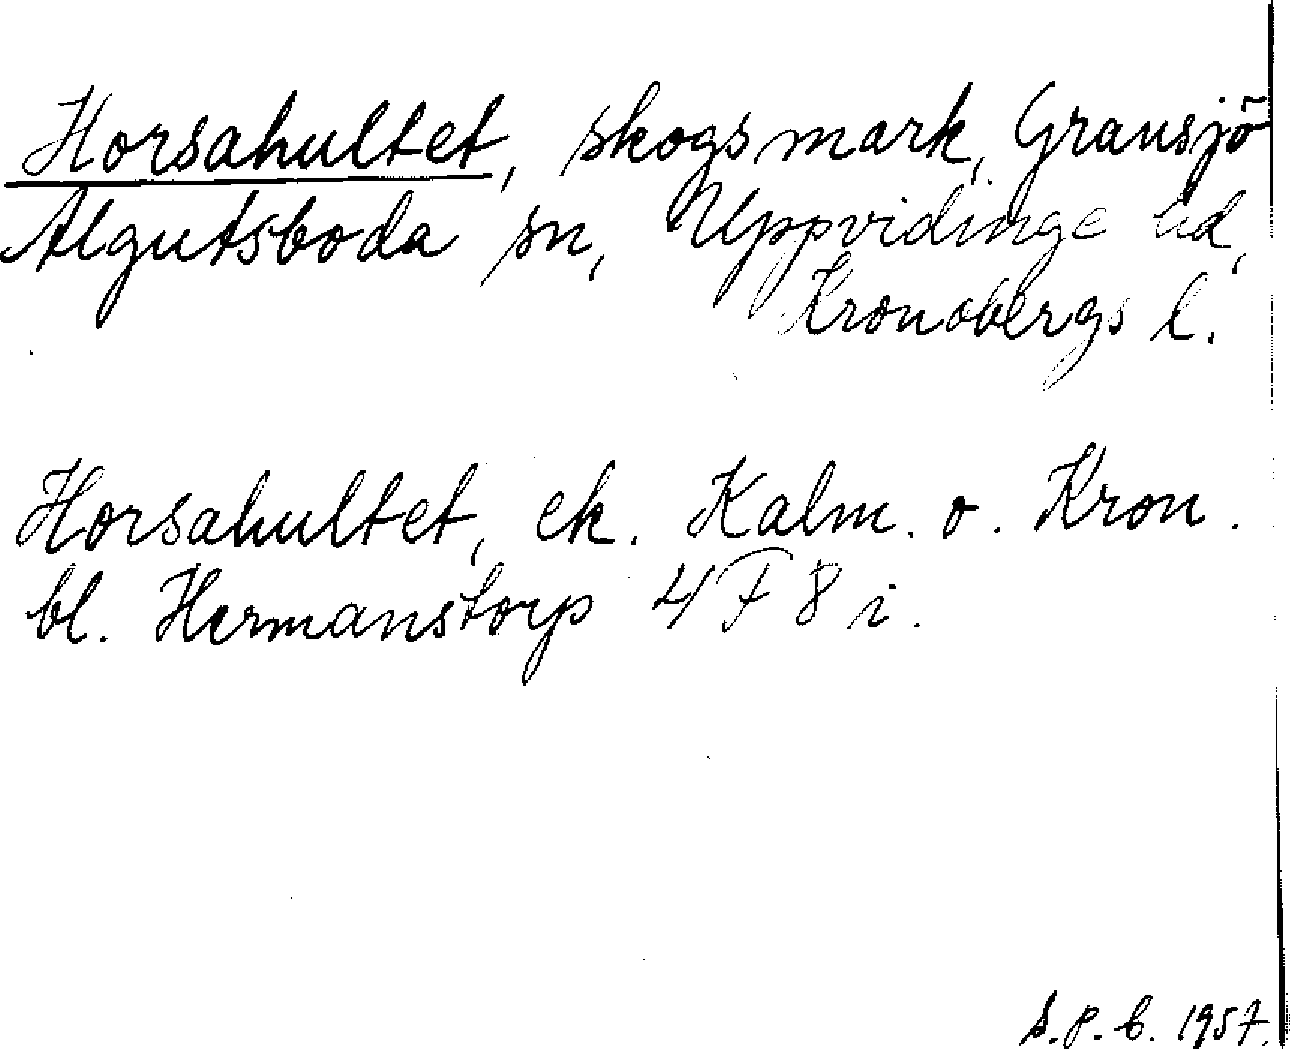 Horsahultet, skogsmark, Gransjö
Algutsboda sn, Uppvidinge hd,
Kronobergs l.
Horsahultet, ek. Kalm. o. Kron.
bl. Hermanstorp 4F 8 i.
S.P.B. 1957.